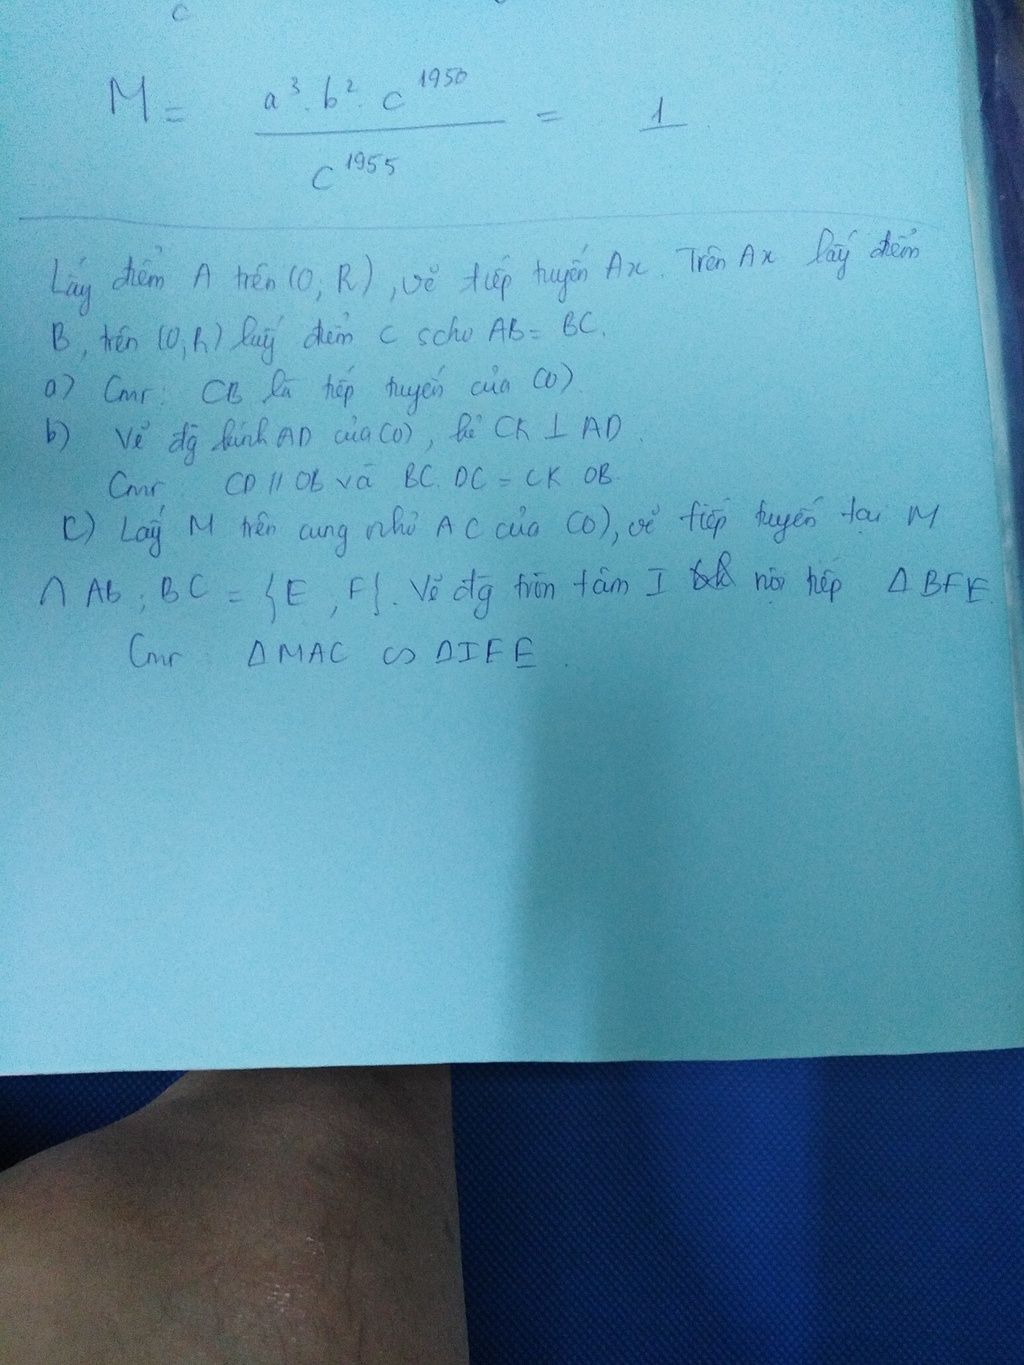 c
M = a³. b². c¹⁹⁵⁰ / c¹⁹⁵⁵ = 1
Lấy điểm A trên (O, R), vẽ tiếp tuyến Ax. Trên Ax lấy điểm
B, trên (O, R) lấy điểm C scho AB = BC.
a) Cmr: CB là tiếp tuyến của (O)
b) Vẽ đg kính AD của (O), kẻ CK ⊥ AD.
Cmr CD // OB và BC. DC = CK OB.
c) Lấy M trên cung nhỏ AC của (O), vẽ tiếp tuyến tại M
∩ AB; BC = {E, F}. Vẽ đg tròn tâm I nội tiếp Δ BFE
Cmr ΔMAC ∽ ΔIFE.